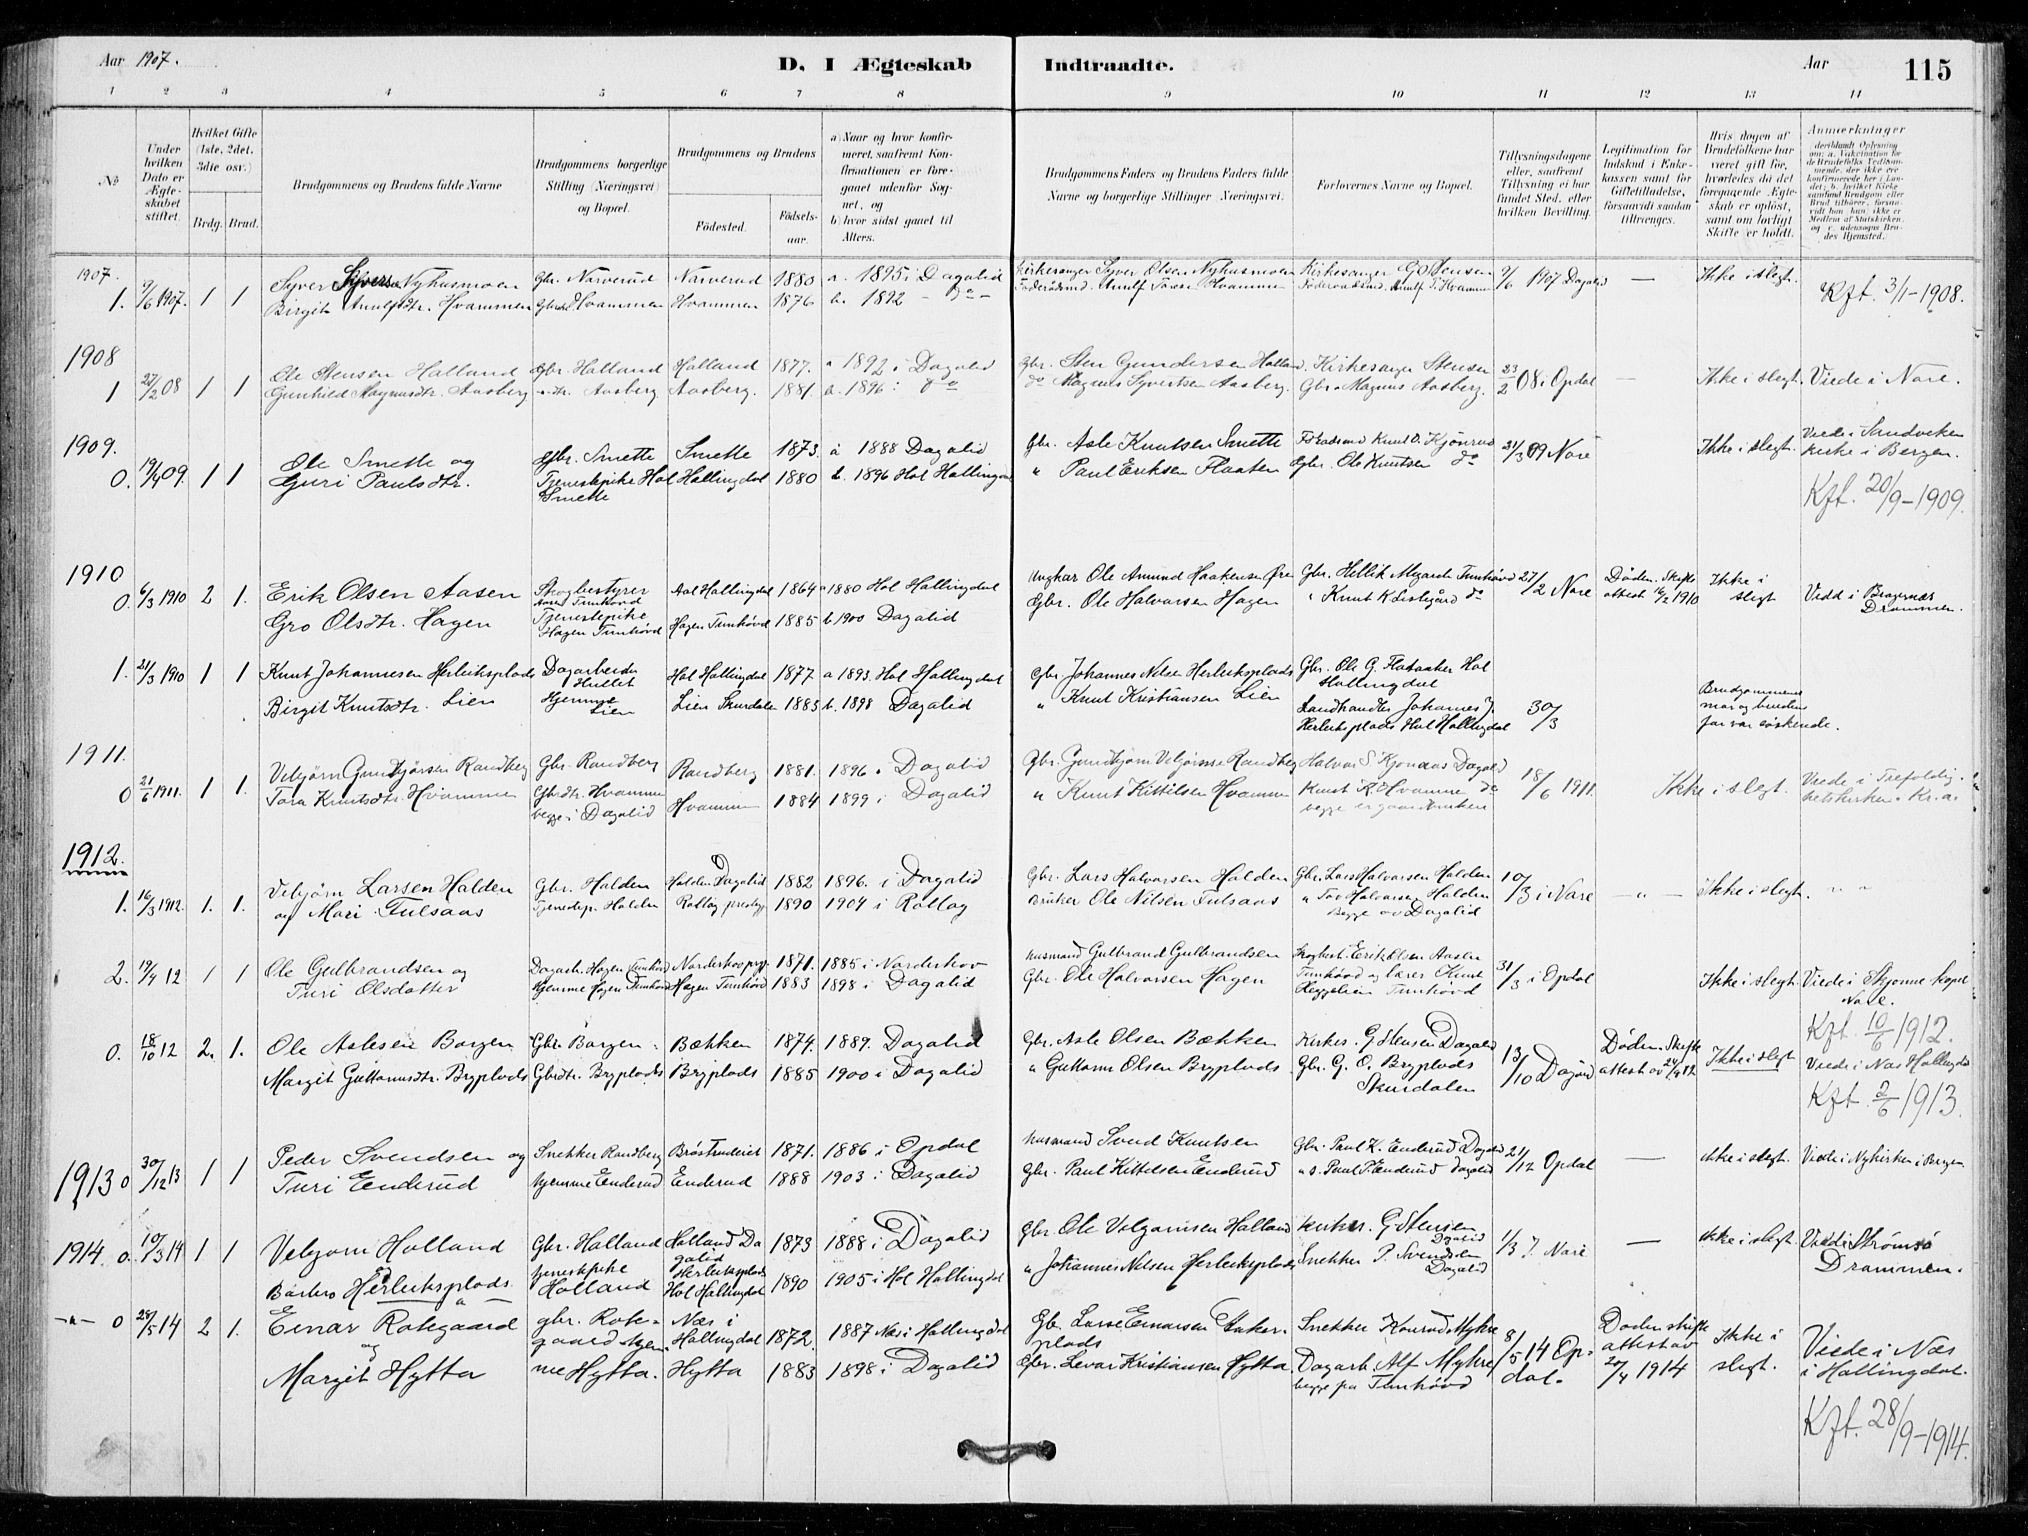 Aar 1907.
D. I Ægteskab Indtraadte.
Aar
115
1 2 3 4 5 6 7 8 9 10 11 12 13 14
No
Under hvilken Dato er Ægteskabet stiftet.
Hvilket Gifte (1ste, 2det, 3die osv.)
Brdg. Brud.
Brudgommens og Brudens fulde Navne
Brudgommens borgerlige Stilling (Næringsvei) og Bopæl.
Brudgommens og Brudens
Fødested. Fødselsaar.
a) Naar og hvor konfirmeret, saafremt Konfirmationen er foregaaet udenfor Sognet, og
b) hvor sidst gaaet til Alters.
Brudgommens Faders og Brudens Faders fulde Navne og borgerlige Stillinger Næringsvei.
Forlovernes Navne og Bopæl.
Tillysningsdagene eller, saafremt Tillysning ei har fundet Sted, efter hvilken Bevilling.
Legitimation for Indskud i Enkekassen samt for Giftetilladelse, forsaavidt saadan tiltrænges.
Hvis nogen af Brudefolkene har været gift før, hvorledes da det foregaaende Ægteskab er opløst, samt om lovligt Skifte er holdt.
Anmerkninger
1907.
1. 9/6 1907. 1 1 Syver Syversen Nyhusmoen Gbr. Narverud Narverud 1880 a. 1895 i Dagalid Kirkesanger Syver Olsen Nyhusmoen Kirkesanger G. Stensen 9/6 1907 Dagalid — Ikke i slegt.
Birgit Arnulfsdtr. Hvammen Hvammen Hvammen 1876 b. 1892 - do - Kft. 3/1-1908.
1908
1 27/2 08 1 1 Ole Stensen Halland Gbr. Halland Halland 1877. a 1892 i Dagalid Gbr. Sten Gundersen Halland Kirkesanger Stensen 23/2 08 i Opdal — Ikke i slegt. Viede i Nore.
Gunhild Magnusdtr. Aasberg Aasberg Aasberg. 1881. a. 1896 i do do Magnus Syvertsen Aasberg. Gbr. Magnus Aasberg.
1909.
0. 19/4 09. 1 1 Ole Smette og Gbr. Smette Smette 1873. a 1888 Dagalid Gbr. Asle Knutsen Smette Knut O. Kjønrud 21/3 09 Nore Ikke i slegt. Viede i Sandviken kirke i Bergen.
Guri Paulsdtr. Tjenestepike Hol Smette Hallingdal 1880 b. 1896 Hol Hallingdal " Paul Eriksen Flaaten Gbr. Ole Knutsen do
Kft. 20/9-1909.
1910
0. 6/3 1910 2 1. Erik Olsen Aasen Skogbestyrer Aasen Tunhövd Aal Hallingdal 1864 a 1880 Hol Hallingdal Ungkar Ole Amund Haakensen Øren Gbr. Hellik Tunhövd 27/2 Nore Døden. Skifte attest 16/2 1910 Ikke i slegt Viede i Bragernæs Drammen.
Gro Olsdtr. Hagen Tjenestepike Hagen Tunhövd Hagen Tunhövd 1885 b. 1900 Dagalid Gbr. Ole Halvorsen Hagen " Knut K do
1. 21/3 1910 1 1 Knut Johannesen Herleiksplads Dagarbeider Hol Hallingdal 1877 a 1893. Hol Hallingdal Gbr Johannes Nilsen Herleiksplads Gbr. Ole G. Hol Hallingdal
Birgit Knutsdtr. Lien Hjemme Lien Lien Skurdalen 1883 b. 1898 Dagalid " Knut Kristiansen Lien Landhandler Johannes J. Herleiksplads Hol Hallingdal 30/3 Brudgommens mor og brudens far var søskende.
1911.
0 21/6 1911. 1 1. Vebjörn Gundbjørsen Randberg Gbr. Randberg Randberg 1881. 1896 i Dagalid Gbr. Gundbjörn Vebjørnsen Randberg Halvor S. Kjönaas Dagalid 18/6 1911. Ikke i slegt. Viede i Trefoldighetskirken. Kr.a.
Tora Knutsdtr. Hvammen Gbrdtr. Hvammen begge i Dagalid Hvammen 1884 1899 i Dagalid " Knut Kittilsen Hvammen Knut K Hvammen do
1912.
1. 16/3 1912. 1. 1. Vebjörn Larsen Halden Gbr. Halden Halden Dagalid 1882 1896. i Dagalid Gbr. Lars Halvorsen Halden Gbr. Lars Halvorsen Halden 10/3 i Nore — " — Ikke i slegt. " "
og Mari Fulsaas Tjenestep. Halden Rollag prestegj. 1890 1904 i Rollag Bruker Ole Nilsen Fulsaas " Tov Halvorsen Halden Begge av Dagalid
2. 19/4 12 1 1 Ole Gulbrandsen og Dagarb. Hagen Tunhövd Norderhov prgj. 1871. 1885 i Norderhov Husmand Gulbrand Gulbrandsen Skogbest. Erik Olsen Aasen 31/3 i Opdal Ikke i slegt. Viede i Skjönne kapel Nore.
Turi Olsdatter Hjemme Hagen Tunhövd Hagen Tunhövd 1883 1898 i Dagalid Gbr. Ole Halvorsen Hagen Tunhövd og lærer Knut Heggelien Tunhövd
Kft. 10/6 1912.
0. 18/10 12 2. 1. Ole Aslesen Borgen Gbr. Borgen. Bækken 1874. 1889. Dagalid Gbr. Asle Olsen Bækken Kirkes. G. Stensen Dagalid 13/10 Dagalid Døden. Skifte attest av 24/9 12 Ikke i slegt Viede i Næs Hallingdal
Margit Guttormsdtr. Bryplads Gbrdtr. Bryplads Bryplads 1885 1900 i Dagalid " Guttorm Olsen Bryplads Gbr. G. O. Bryplads Skurdalen
Kft. 2/6 1913.
1913 0 30/12 13 1 1 Peder Svendsen og Snekker Randberg 1871. 1886 i Opdal Husmand Svend Knutsen Gbr. Paul K. Enderud Dagalid 21/12 Opdal — Ikke i slegt. Viede i Nykirken i Bergen.
Turi Enderud Hjemme Enderud Enderud 1888 1903 i Dagalid Gbr. Paul Kittelsen Enderud " s. Paul P. Enderud Dagalid
1914. 0. 10/3 14 1 1 Vebjørn Halland Gbr. Halland Halland Dagalid 1873 1888 i Dagalid Gbr. Ole Halland Kirkes. G. Stensen Dagalid 1/3 i Nore — Ikke i slegt. Viede i Strømsø Drammen.
og Barbro Herleiksplads Tjenestepike Halland Herleiksplads Hol Hallingdal 1890 1905 i Hol Hallingdal " Johannes Nilsen Herleiksplads Snekker P. Svendsen Dagalid
-"- 0 28/5 14 2 1. Einar Rotegaard gbr. Rotegaard Næs i Hallingdal 1872. 1887 Næs i Hallingdal Gb. Lasse Einarsen plads Snekker Konrad Myhre 8/5 14 Opdal. Døden skifte attest av 20/4 1914 Ikke i slegt. Viede i Næs i Hallingdal.
og Margit Hytta hjemme Hytta. Hytta 1883 1898 i Dagalid Gbr. Levor Kristiansen Hytta Dagarb. Alf Myhre begge fra Tunhövd
Kft. 28/9-1914.